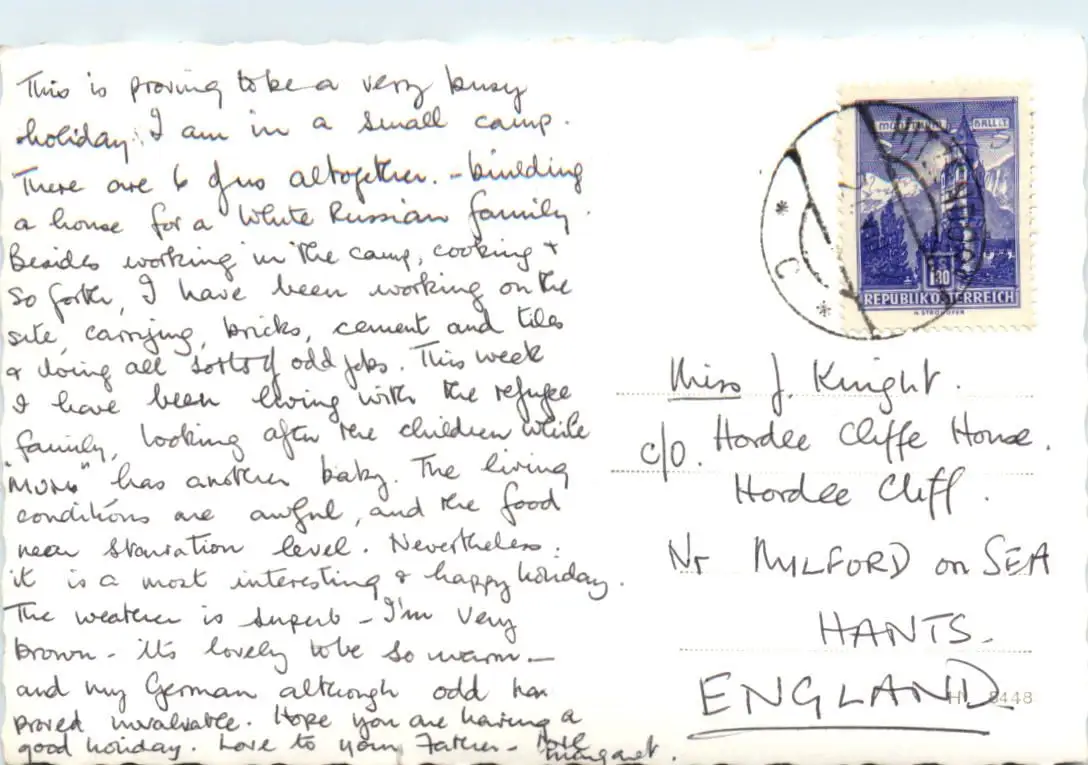 This is proving to be a very busy
holiday. I am in a small camp.
There are 6 of us altogether. - building
a house for a White Russian family.
Besides working in the camp, cooking +
so forth, I have been working on the
site, carrying, bricks, cement and tiles
& doing all sorts of odd jobs. This week
I have been living with the refugee
family, looking after the children while
"MUM" has another baby. The living
conditions are awful, and the food
near starvation level. Nevertheless.
it is a most interesting & happy holiday.
The weather is superb - I'm very
brown - it's lovely to be so warm -
and my German although odd has
proved invaluable. Hope you are having a
good holiday. Love to your Father - Love
Margaret.
REPUBLIK ÖSTERREICH
Miss J. Knight.
c/o. Hordle Cliffe House.
Hordle Cliff.
Nr MILFORD on SEA
HANTS.
ENGLAND
8448